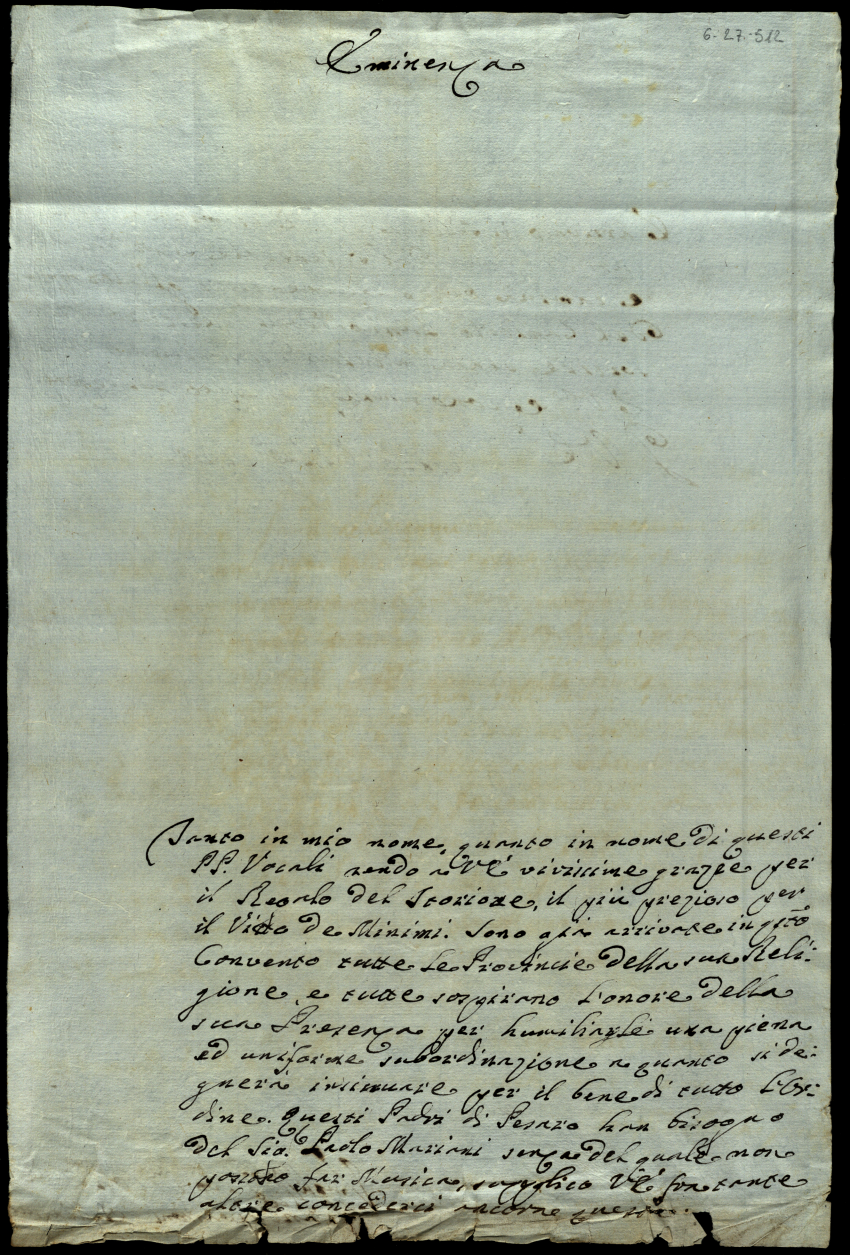 6-27-512
Eminenza
Tanto in mio nome, quanto in nome di questi
PP. Vocali rendo a V.E. vivissime grazie per
il Regalo del Storione, il più prezioso per
il Vitto de Minimi. Sono già arrivate in qsto
Convento tutte le Provincie della sua Reli:
gione, e tutte sospirano l'onore della
sua Presenza per humiliarle una piena
ed uniforme subordinazione a quanto si de:
gnerà insinuare per il bene di tutto l'Or:
dine. Questi Padri di Pesaro han bisogno
del Sig. Paolo Mariani senza del quale non
possono far Musica, supplico V.E. fra tante
altre concederci ancora questa.